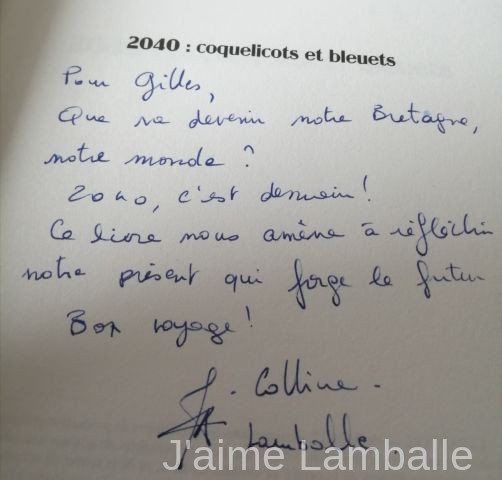 2040 : coquelicots et bleuets
Pour Gilles,
Que va devenir notre Bretagne,
notre monde ?
2040, c'est demain !
Ce livre nous amène à réfléchir
notre présent qui forge le futur
Bon voyage !
J. Colline.
Lamballe.
J'aime Lamballe